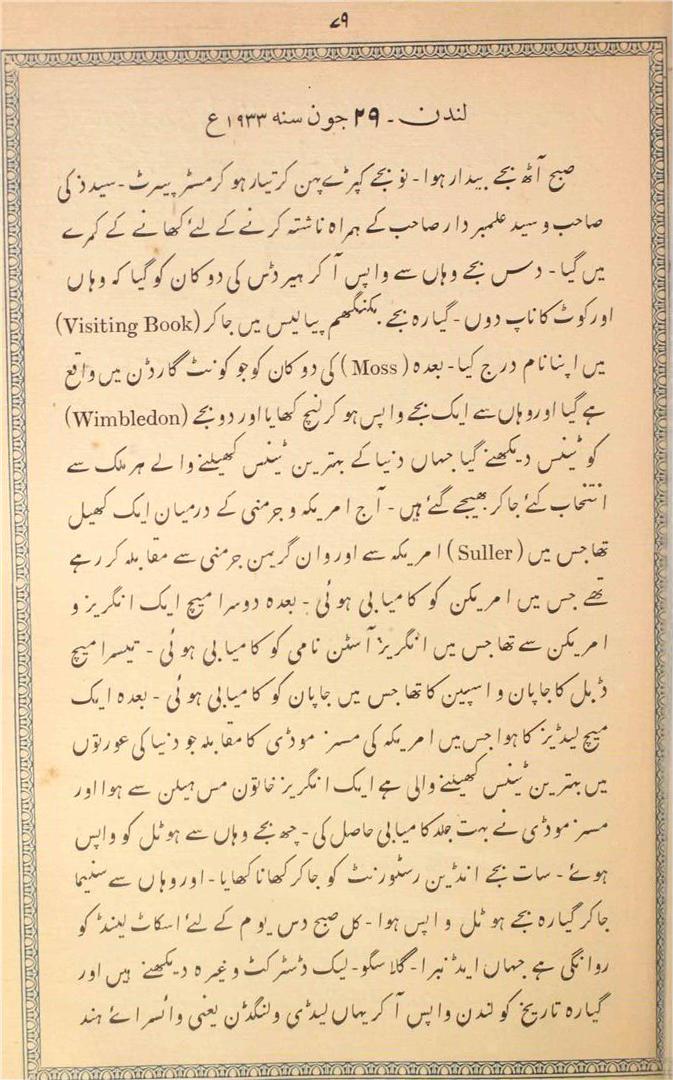 ۷۹
لندن ۔ ۲۹ جون سنه ۱۹۳۳ ع
صبح آٹھ بجے بیدار ہوا ۔ نو بجے کپڑے پہن کر تیار ہو کر مسٹر پیرٹ ۔ سید ذکی
صاحب و سید علمبردار صاحب کے ہمراہ ناشتہ کرنے کے لئے کھانے کے کمرے
میں گیا ۔ دس بجے وہاں سے واپس آ کر ہیرڈس کی دوکان کو گیا کہ وہاں
اور کوٹ کا ناپ دوں ۔ گیارہ بجے بکنگھم پیالیس میں جا کر (Visiting Book)
میں اپنا نام درج کیا ۔ بعدہ (Moss) کی دوکان کو جو کونٹ گارڈن میں واقع
ہے گیا اور وہاں سے ایک بجے واپس ہو کر لنچ کھایا اور دو بجے (Wimbledon)
کو ٹینس دیکھنے گیا جہاں دنیا کے بہترین ٹینس کھیلنے والے ہر ملک سے
انتخاب کئے جا کر بھیجے گئے ہیں ۔ آج امریکہ و جرمنی کے درمیان ایک کھیل
تھا جس میں (Suller) امریکہ سے اور وان گریمن جرمنی سے مقابلہ کر رہے
تھے جس میں امریکن کو کامیابی ہوئی ۔ بعدہ دوسرا میچ ایک انگریز و
امریکن سے تھا جس میں انگریز آسٹن نامی کو کامیابی ہوئی ۔ تیسرا میچ
ڈبل کا جاپان و اسپین کا تھا جس میں جاپان کو کامیابی ہوئی ۔ بعدہ ایک
میچ لیڈیز کا ہوا جس میں امریکہ کی مسز موڈی کا مقابلہ جو دنیا کی عورتوں
میں بہترین ٹینس کھیلنے والی ہے ایک انگریز خاتون مس ہیلن سے ہوا اور
مسز موڈی نے بہت جلد کامیابی حاصل کی ۔ چھ بجے وہاں سے ہوٹل کو واپس
ہوئے ۔ سات بجے انڈین رسٹورنٹ کو جا کر کھانا کھایا ۔ اور وہاں سے سنیما
جا کر گیارہ بجے ہوٹل واپس ہوا ۔ کل صبح دس یوم کے لئے اسکاٹ لینڈ کو
روانگی ہے جہاں ایڈنبرا ۔ گلاسگو ۔ لیک ڈسٹرکٹ وغیرہ دیکھنے ہیں اور
گیارہ تاریخ کو لندن واپس آ کر یہاں لیڈی ولنگڈن یعنی وائسرائے ہند